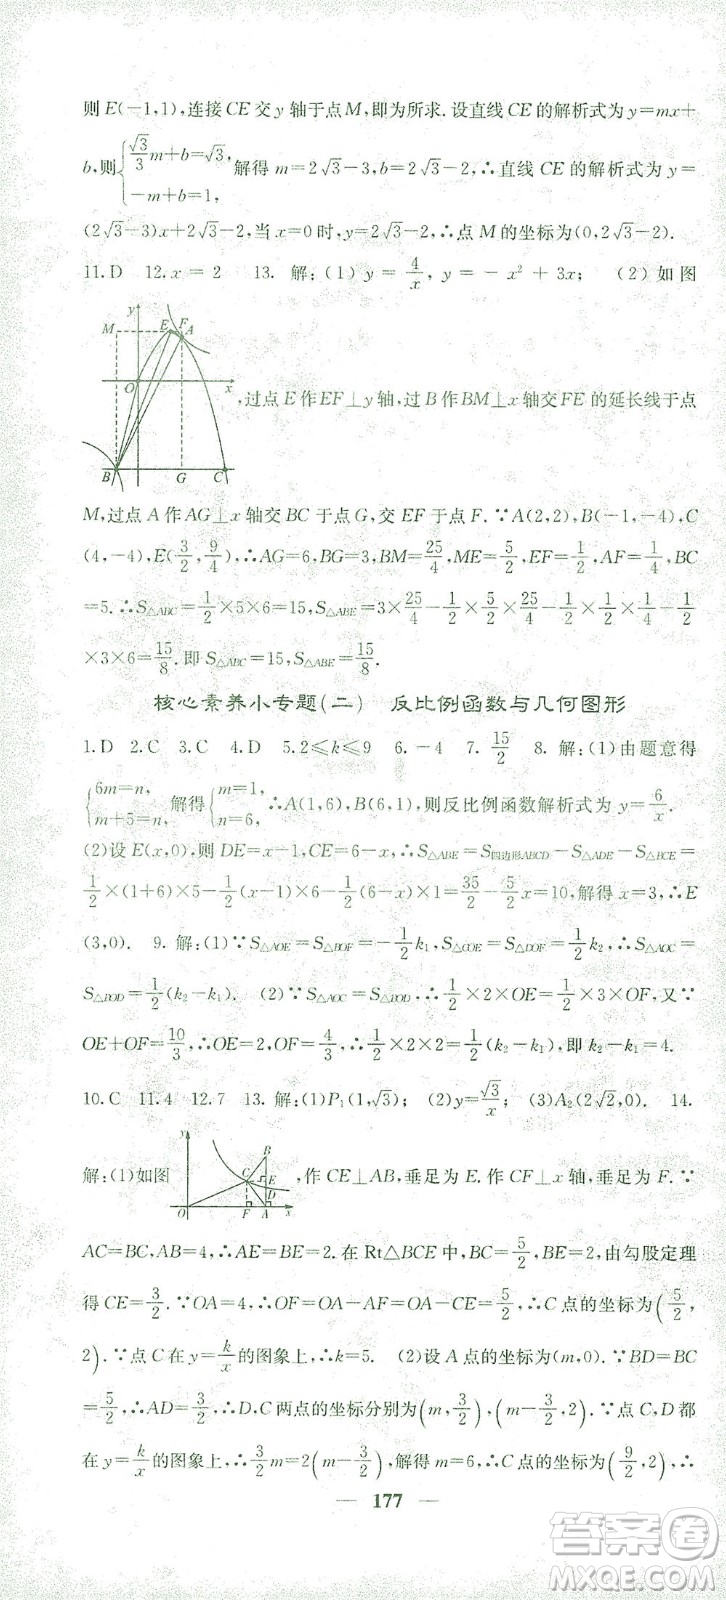 则 E(-1,1),连接 CE 交 y 轴于点 M,即为所求. 设直线 CE 的解析式为 y=mx+
b,则{√3/3 m+b=√3, -m+b=1, 解得 m=2√3-3,b=2√3-2,∴直线 CE 的解析式为 y=
(2√3-3)x+2√3-2,当 x=0 时,y=2√3-2,∴点 M 的坐标为(0,2√3-2).
11.D 12.x=2 13. 解:(1) y=4/x, y=-x²+3x; (2) 如图
y M E F A O x B G C
,过点 E 作 EF⊥y 轴,过 B 作 BM⊥x 轴交 FE 的延长线于点
M,过点 A 作 AG⊥x 轴交 BC 于点 G,交 EF 于点 F. ∵A(2,2),B(-1,-4),C
(4,-4),E(3/2,9/4),∴AG=6,BG=3,BM=25/4,ME=5/2,EF=1/2,AF=1/4,BC
=5.∴S△ABC=1/2×5×6=15,S△ABE=3×25/4-1/2×5/2×25/4-1/2×1/2×1/4-1/2
×3×6=15/8.即 S△ABC=15,S△ABE=15/8.
核心素养小专题(二) 反比例函数与几何图形
1.D 2.C 3.C 4.D 5.2≤k≤9 6.-4 7.15/2 8. 解:(1)由题意得
{6m=n, m+5=n, 解得{m=1, n=6, ∴A(1,6),B(6,1),则反比例函数解析式为 y=6/x.
(2)设 E(x,0),则 DE=x-1,CE=6-x,∴S△ABE=S四边形ABCD-S△ADE-S△BCE=
1/2×(1+6)×5-1/2(x-1)×6-1/2(6-x)×1=35/2-5/2x=10,解得 x=3,∴E
(3,0). 9. 解:(1)∵S△AOE=S△BOF=-1/2k₁,S△COE=S△DOF=1/2k₂,∴S△AOC=
S△BOD=1/2(k₂-k₁). (2)∵S△AOC=S△BOD,∴1/2×2×OE=1/2×3×OF,又∵
OE+OF=10/3,∴OE=2,OF=4/3,∴1/2×2×2=1/2(k₂-k₁),即 k₂-k₁=4.
10.C 11.4 12.7 13. 解:(1)P₁(1,√3); (2)y=√3/x; (3)A₂(2√2,0). 14.
解:(1)如图 y B C E D O F A x ,作 CE⊥AB,垂足为 E. 作 CF⊥x 轴,垂足为 F. ∵
AC=BC,AB=4,∴AE=BE=2. 在 Rt△BCE 中,BC=5/2,BE=2,由勾股定理
得 CE=3/2. ∵OA=4,∴OF=OA-AF=OA-CE=5/2,∴C 点的坐标为(5/2,
2).∵点 C 在 y=k/x 的图象上,∴k=5. (2)设 A 点的坐标为(m,0). ∵BD=BC
=5/2,∴AD=3/2,∴D,C 两点的坐标分别为(m,3/2),(m-3/2,2).∵点 C,D 都
在 y=k/x 的图象上,∴3/2m=2(m-3/2),解得 m=6,∴C 点的坐标为(9/2,2),∴
— 177 —
答案卷
MXQE.COM